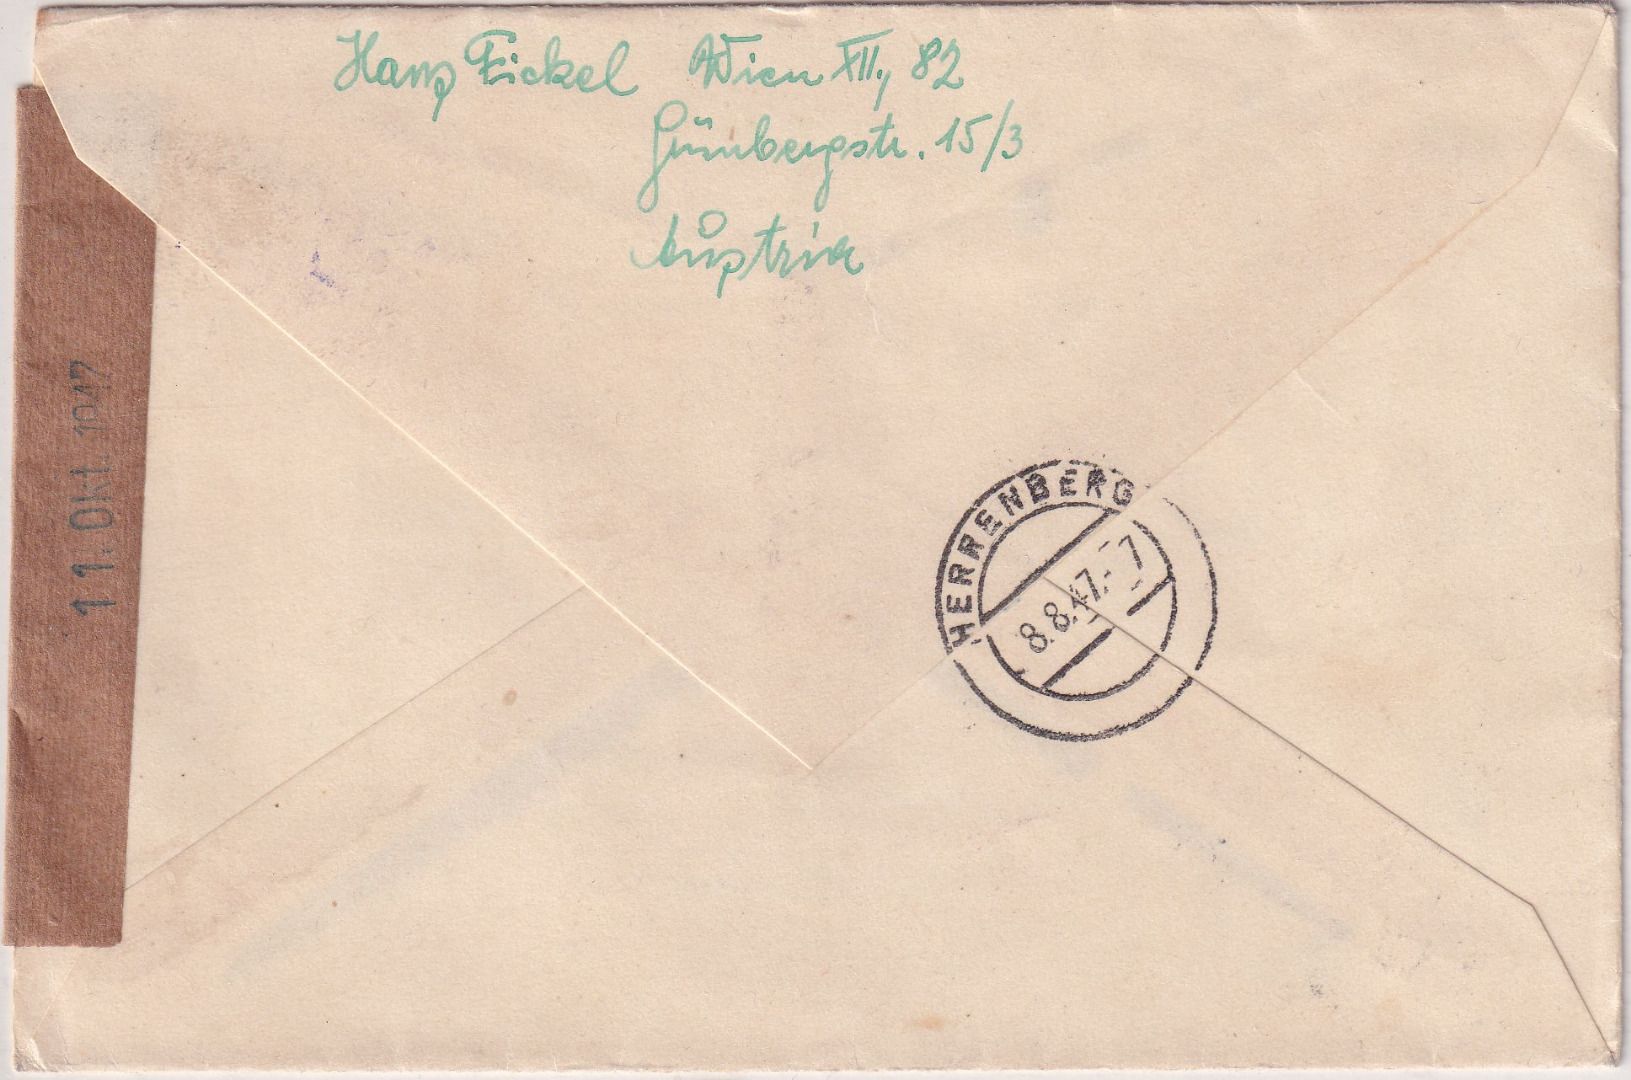 Hans Eickel Wien XII., 82
Grünbergstr. 15/3
Austria
11. Okt. 1947
HERRENBERG
8.8.47.-7